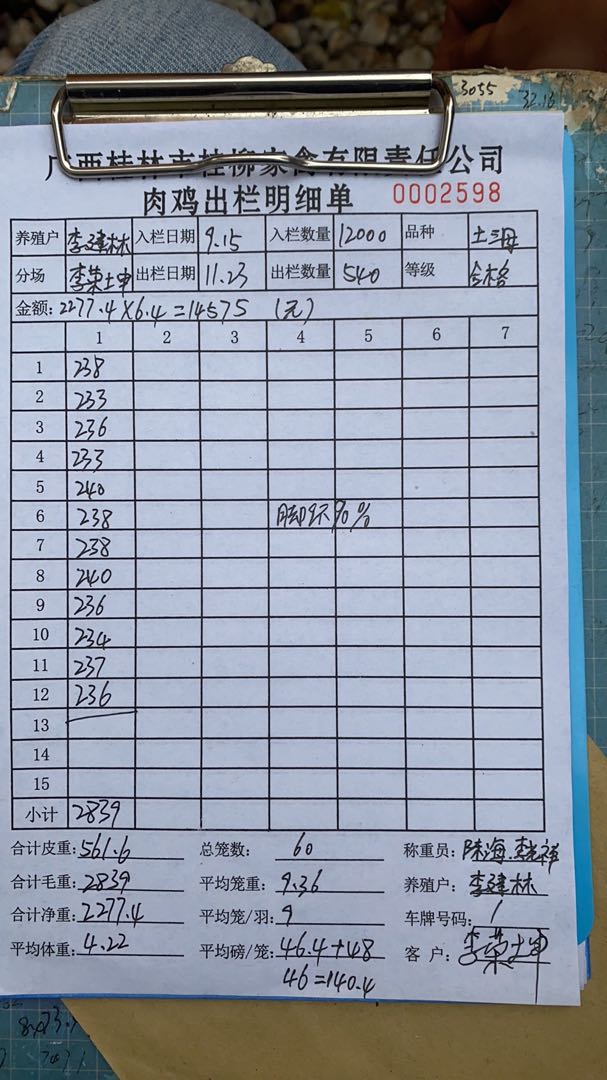 3055
32.16
广西桂林市桂柳家禽有限责任公司
肉鸡出栏明细单 0002598
养殖户 李建林 入栏日期 9.15 入栏数量 12000 品种 土三母
分场 李荣土申 出栏日期 11.23 出栏数量 540 等级 合格
金额: 2277.4×6.4=14575 (元)
1 2 3 4 5 6 7
1 238
2 233
3 236
4 233
5 240
6 238 脚环90%
7 238
8 240
9 236
10 234
11 237
12 236
13
14
15
小计 2839
合计皮重: 561.6 总笼数: 60 称重员: 陈海
合计毛重: 2839 平均笼重: 9.36 养殖户: 李建林
合计净重: 2277.4 平均笼/羽: 9 车牌号码: /
平均体重: 4.22 平均磅/笼: 46.4+48 客户: 李荣土申
46=140.4